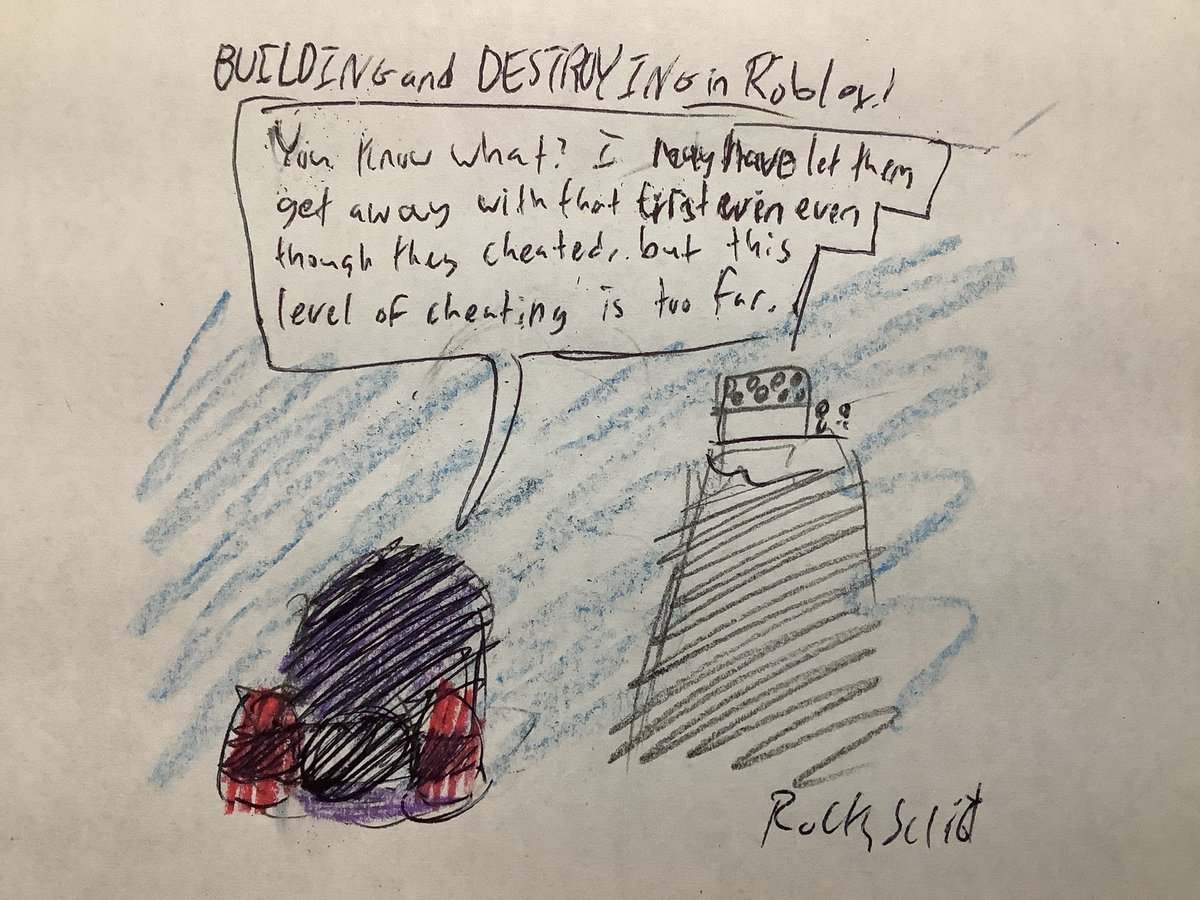 BUILDING and DESTROYING in Roblox!
You know what? I may have let them
get away with that first even even
though they cheated, but this
level of cheating is too far.